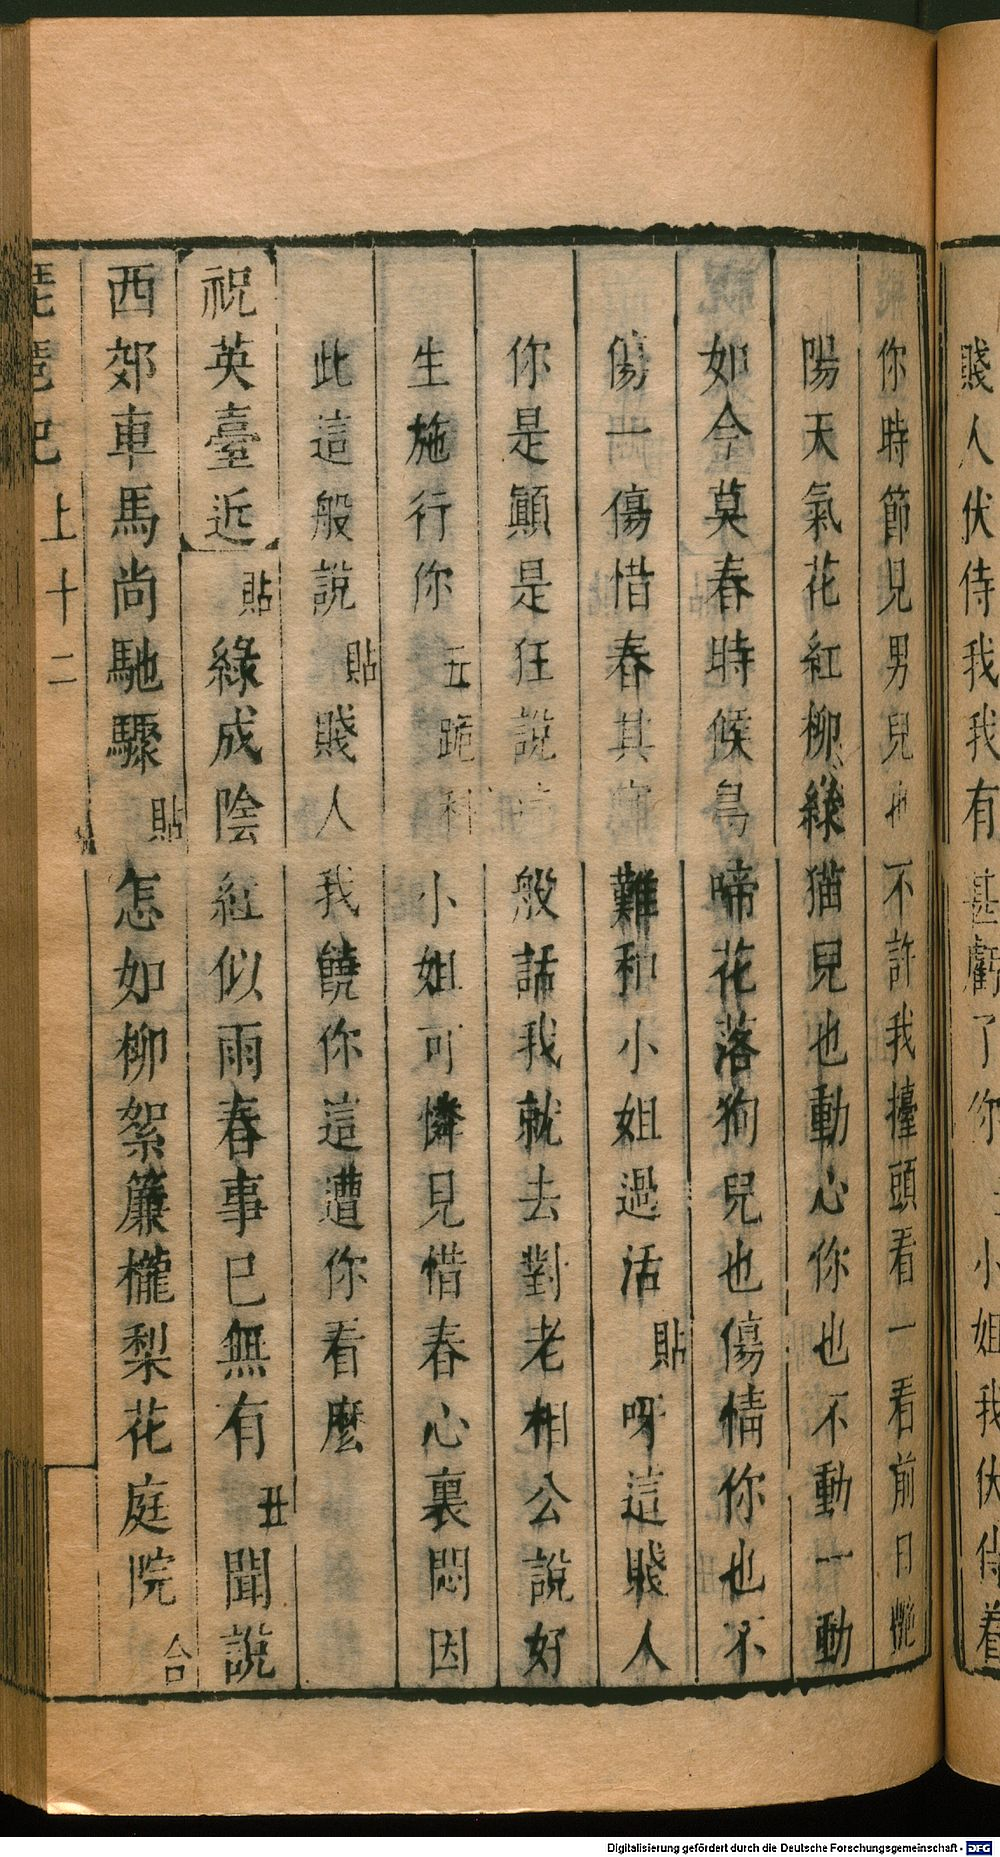 賤人伏侍我我有甚虧了你小姐我伏侍着
你時節見男兒也不許我擡頭看一看前日艷
陽天氣花紅柳綠猫兒也動心你也不動一動
如今莫春時候鳥啼花落狗兒也傷情你也不
傷一傷惜春其實難和小姐過活貼呀這賤人
你是顚是狂說這般話我就去對老相公說好
生施行你丑跪科小姐可憐見惜春心裏悶因
此這般說貼賤人我饒你這遭你看麽
祝英臺近貼綠成陰紅似雨春事已無有丑聞說
西郊車馬尚馳驟貼怎如柳絮簾櫳梨花庭院合
琵琶記上十二
Digitalisierung gefördert durch die Deutsche Forschungsgemeinschaft - DFG